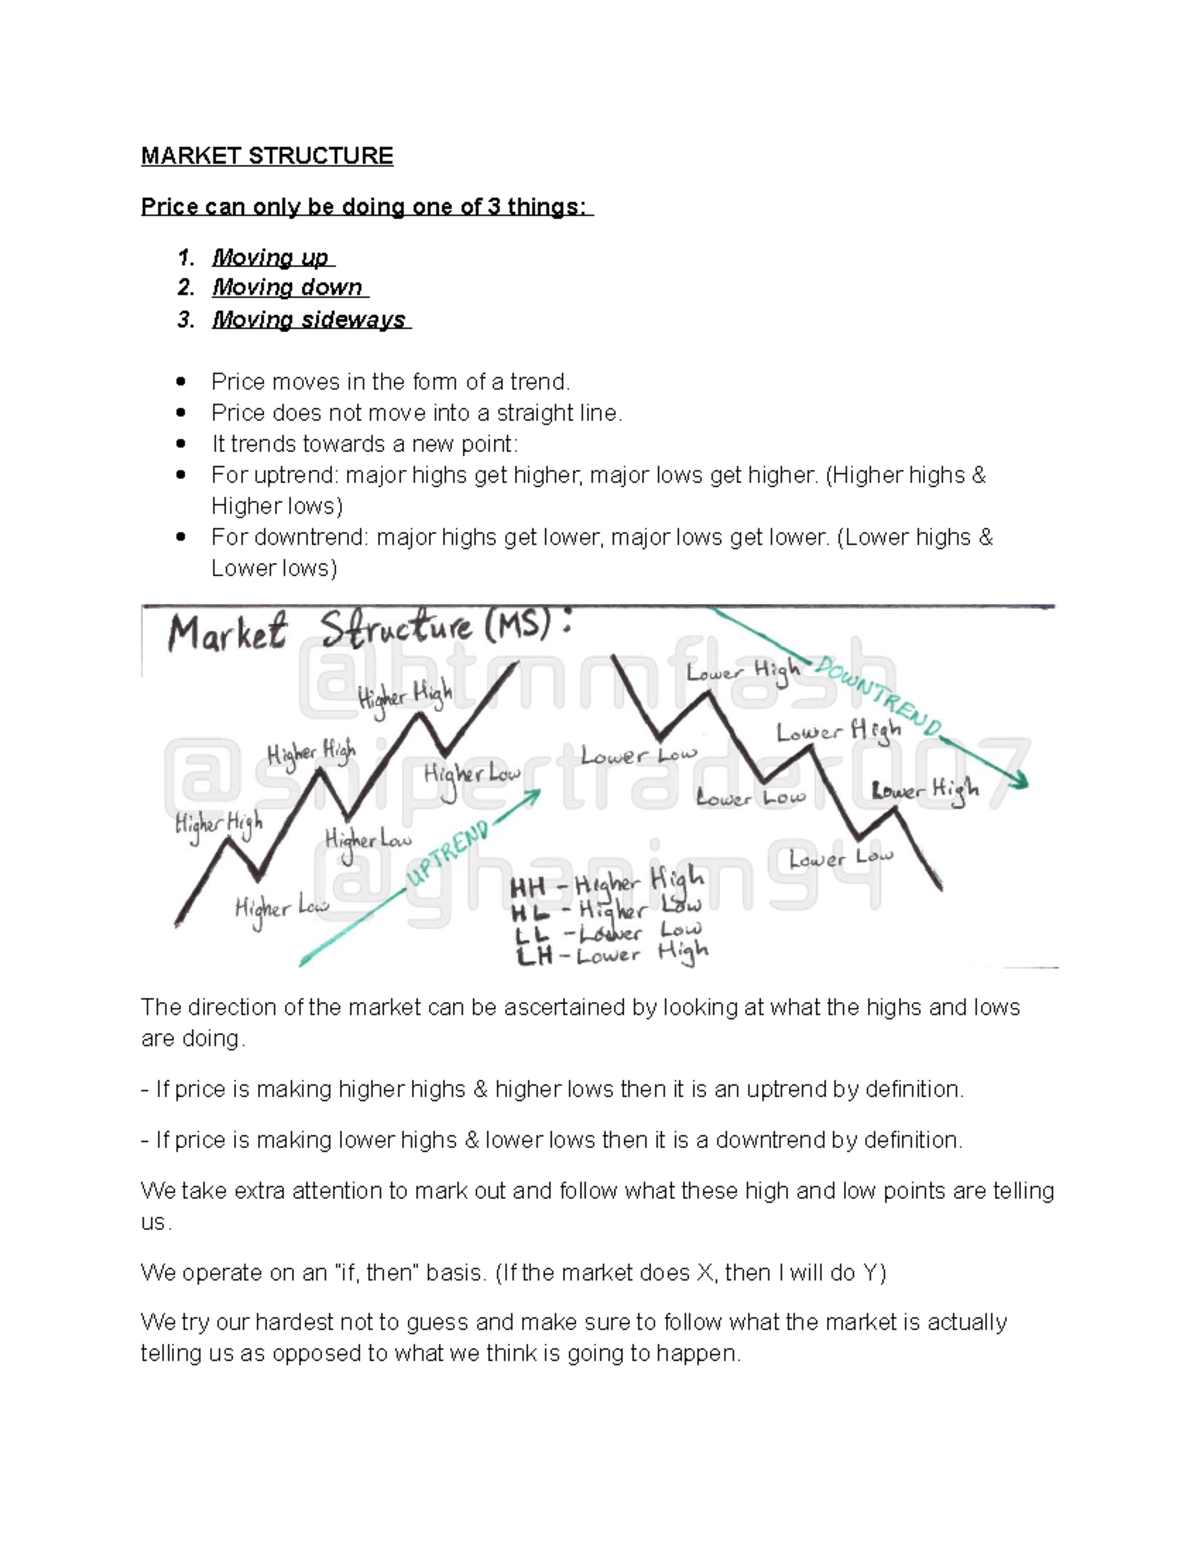 MARKET STRUCTURE
Price can only be doing one of 3 things:
1. Moving up
2. Moving down
3. Moving sideways
• Price moves in the form of a trend.
• Price does not move into a straight line.
• It trends towards a new point:
• For uptrend: major highs get higher, major lows get higher. (Higher highs &
Higher lows)
• For downtrend: major highs get lower, major lows get lower. (Lower highs &
Lower lows)
Market Structure (MS):
@btmmflash
@snipertrader007
@ghanim94
Higher High
Higher High
Higher High
Higher Low
Higher Low
Higher Low
UPTREND
Lower High
DOWNTREND
Lower High
Lower High
Lower Low
Lower Low
Lower Low
HH - Higher High
HL - Higher Low
LL - Lower Low
LH - Lower High
The direction of the market can be ascertained by looking at what the highs and lows
are doing.
- If price is making higher highs & higher lows then it is an uptrend by definition.
- If price is making lower highs & lower lows then it is a downtrend by definition.
We take extra attention to mark out and follow what these high and low points are telling
us.
We operate on an "if, then" basis. (If the market does X, then I will do Y)
We try our hardest not to guess and make sure to follow what the market is actually
telling us as opposed to what we think is going to happen.